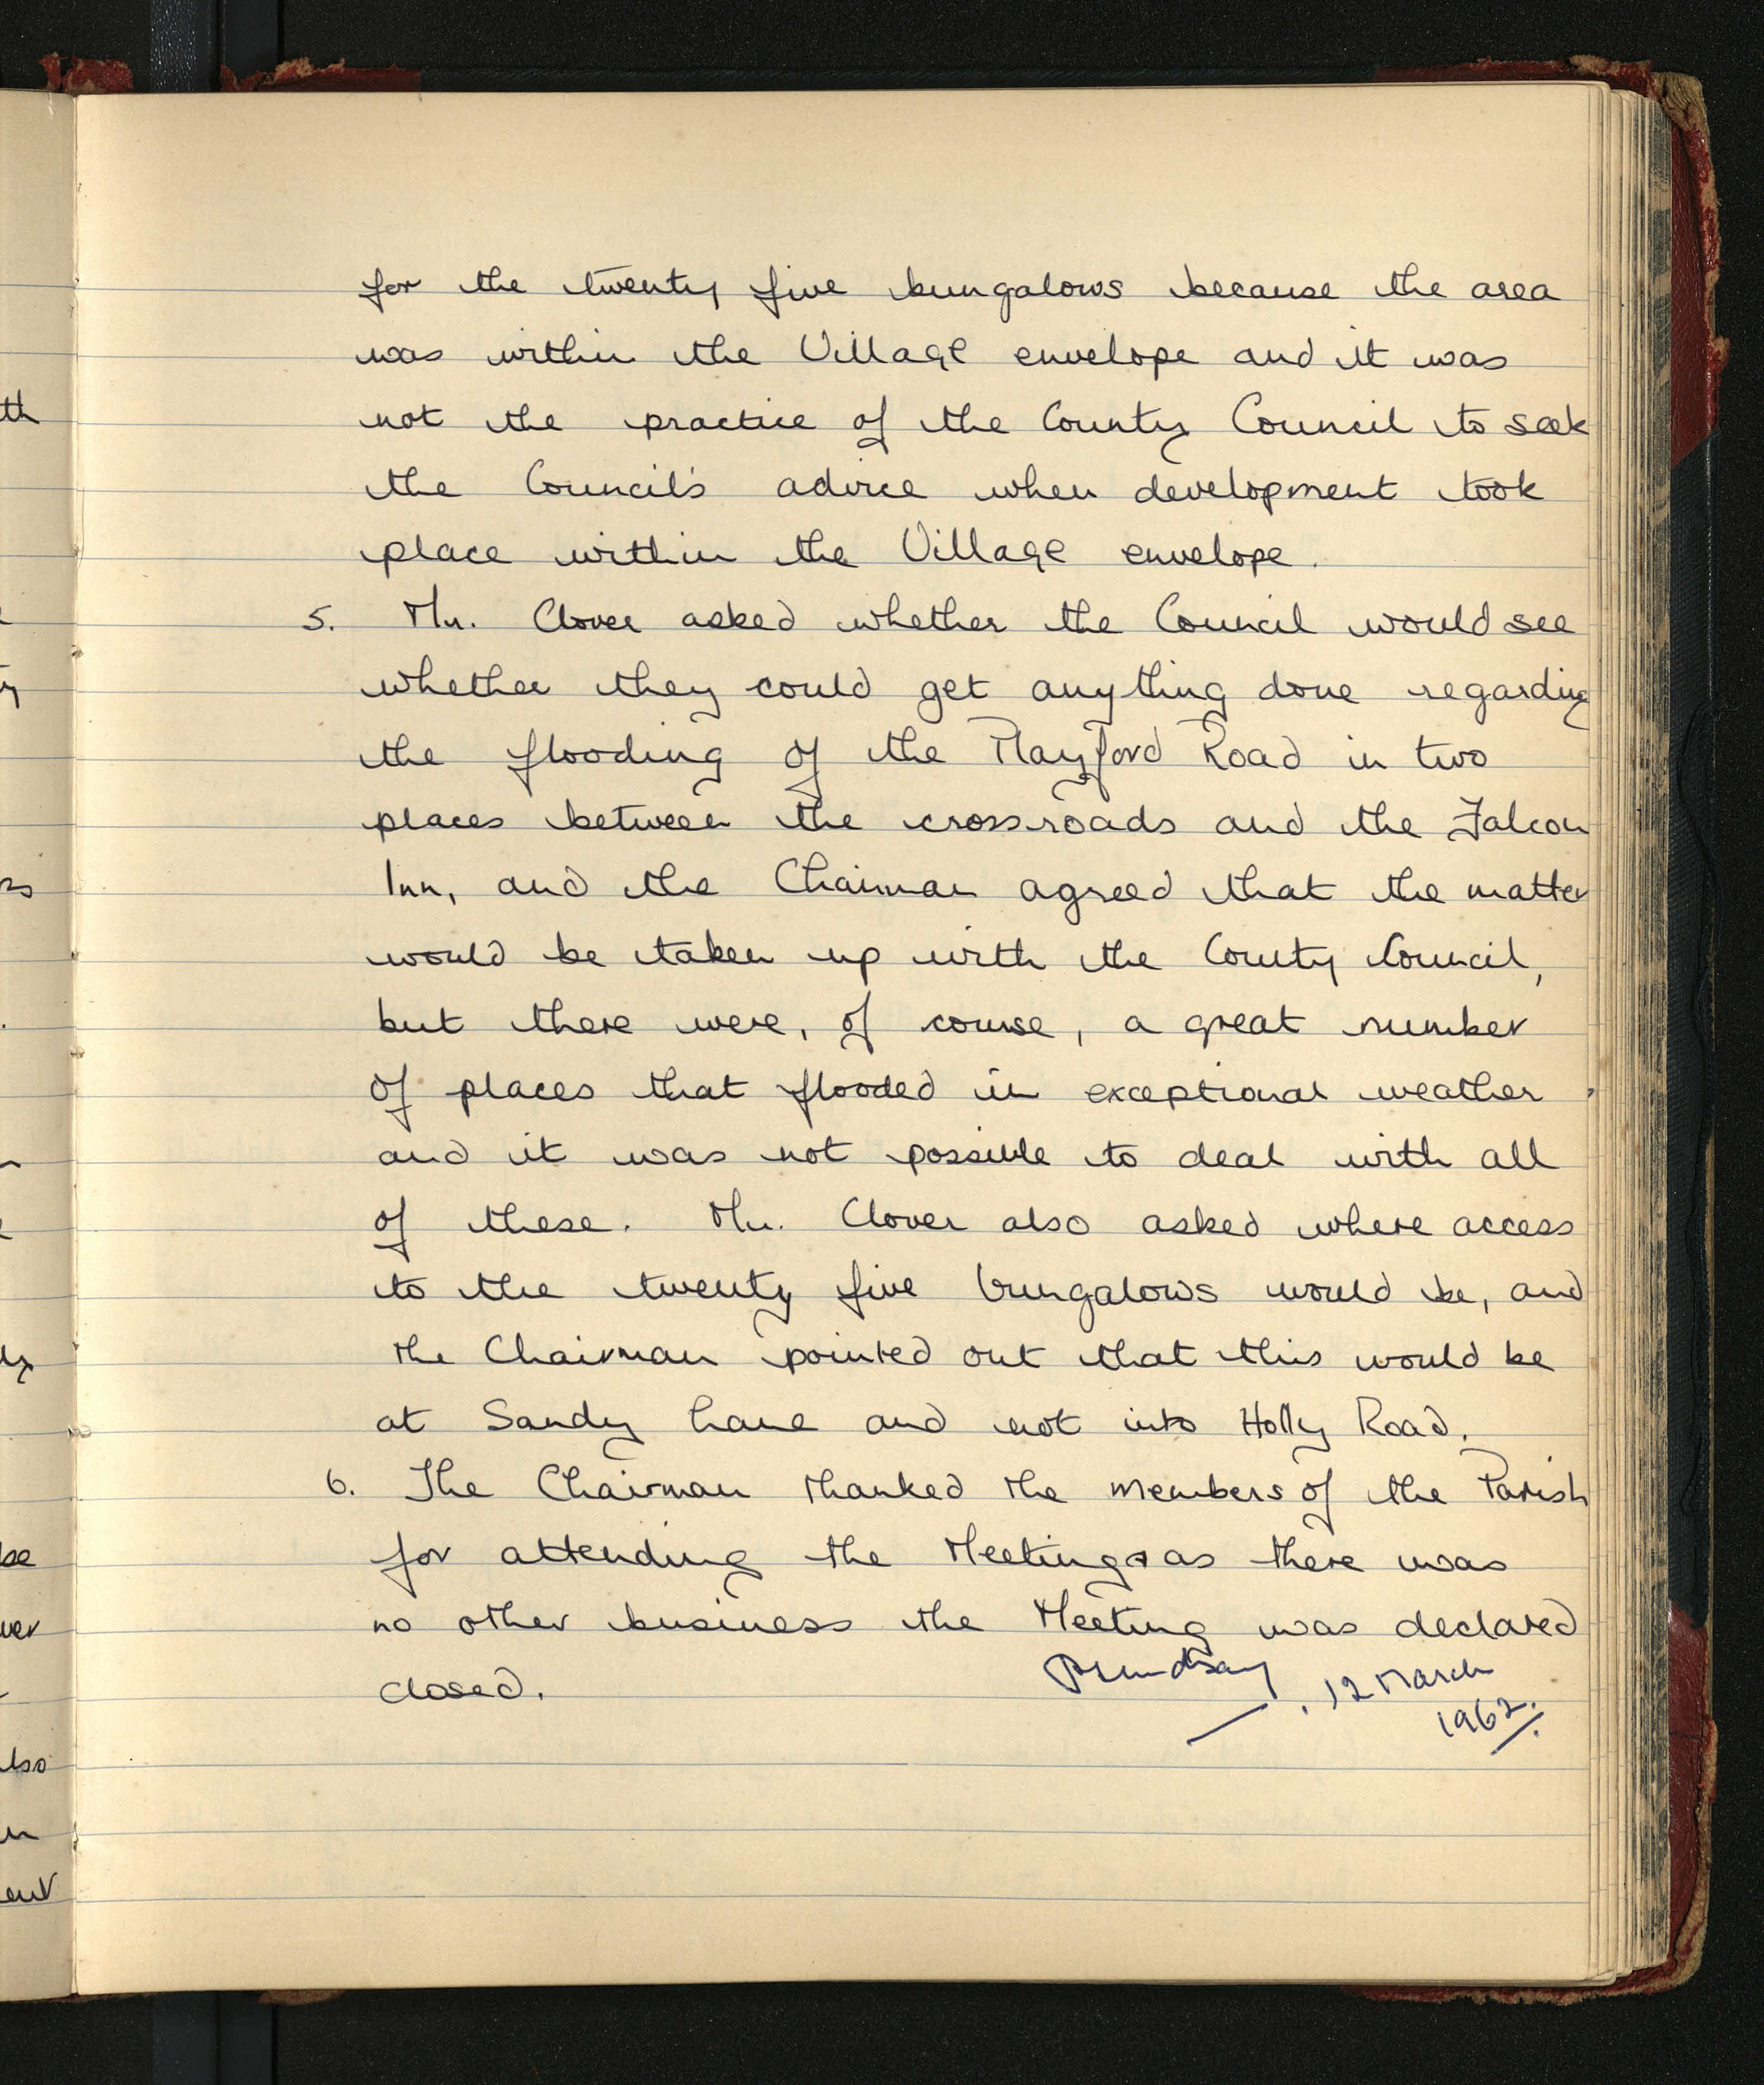 for the twenty five bungalows because the area
was within the Village envelope and it was
not the practice of the County Council to seek
the Council's advice when development took
place within the Village envelope.
5. Mr. Clover asked whether the Council would see
whether they could get anything done regarding
the flooding of the Mayford Road in two
places between the crossroads and the Falcon
Inn, and the Chairman agreed that the matter
would be taken up with the County Council,
but there were, of course, a great number
of places that flooded in exceptional weather,
and it was not possible to deal with all
of these. Mr. Clover also asked where access
to the twenty five bungalows would be, and
the Chairman pointed out that this would be
at Sandy Lane and not into Holly Road.
6. The Chairman thanked the members of the Parish
for attending the Meeting & as there was
no other business the Meeting was declared
closed.
12 March
1962.